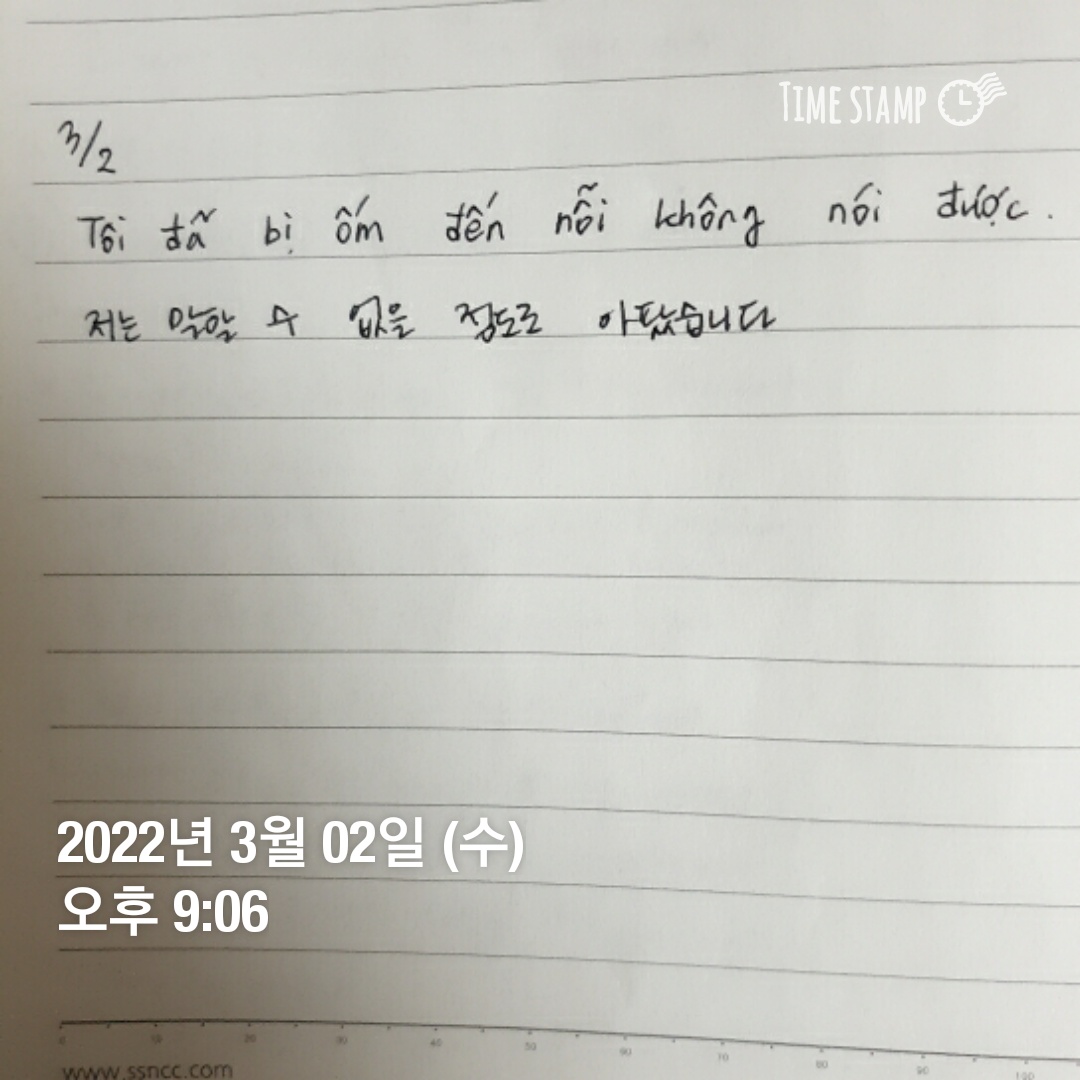 TIME STAMP
3/2
Tôi đã bị ốm đến nỗi không nói được.
저는 말할 수 없을 정도로 아팠습니다
2022년 3월 02일 (수)
오후 9:06
0 10 20 30 40 50 60 70 80 90 100
www.ssncc.com